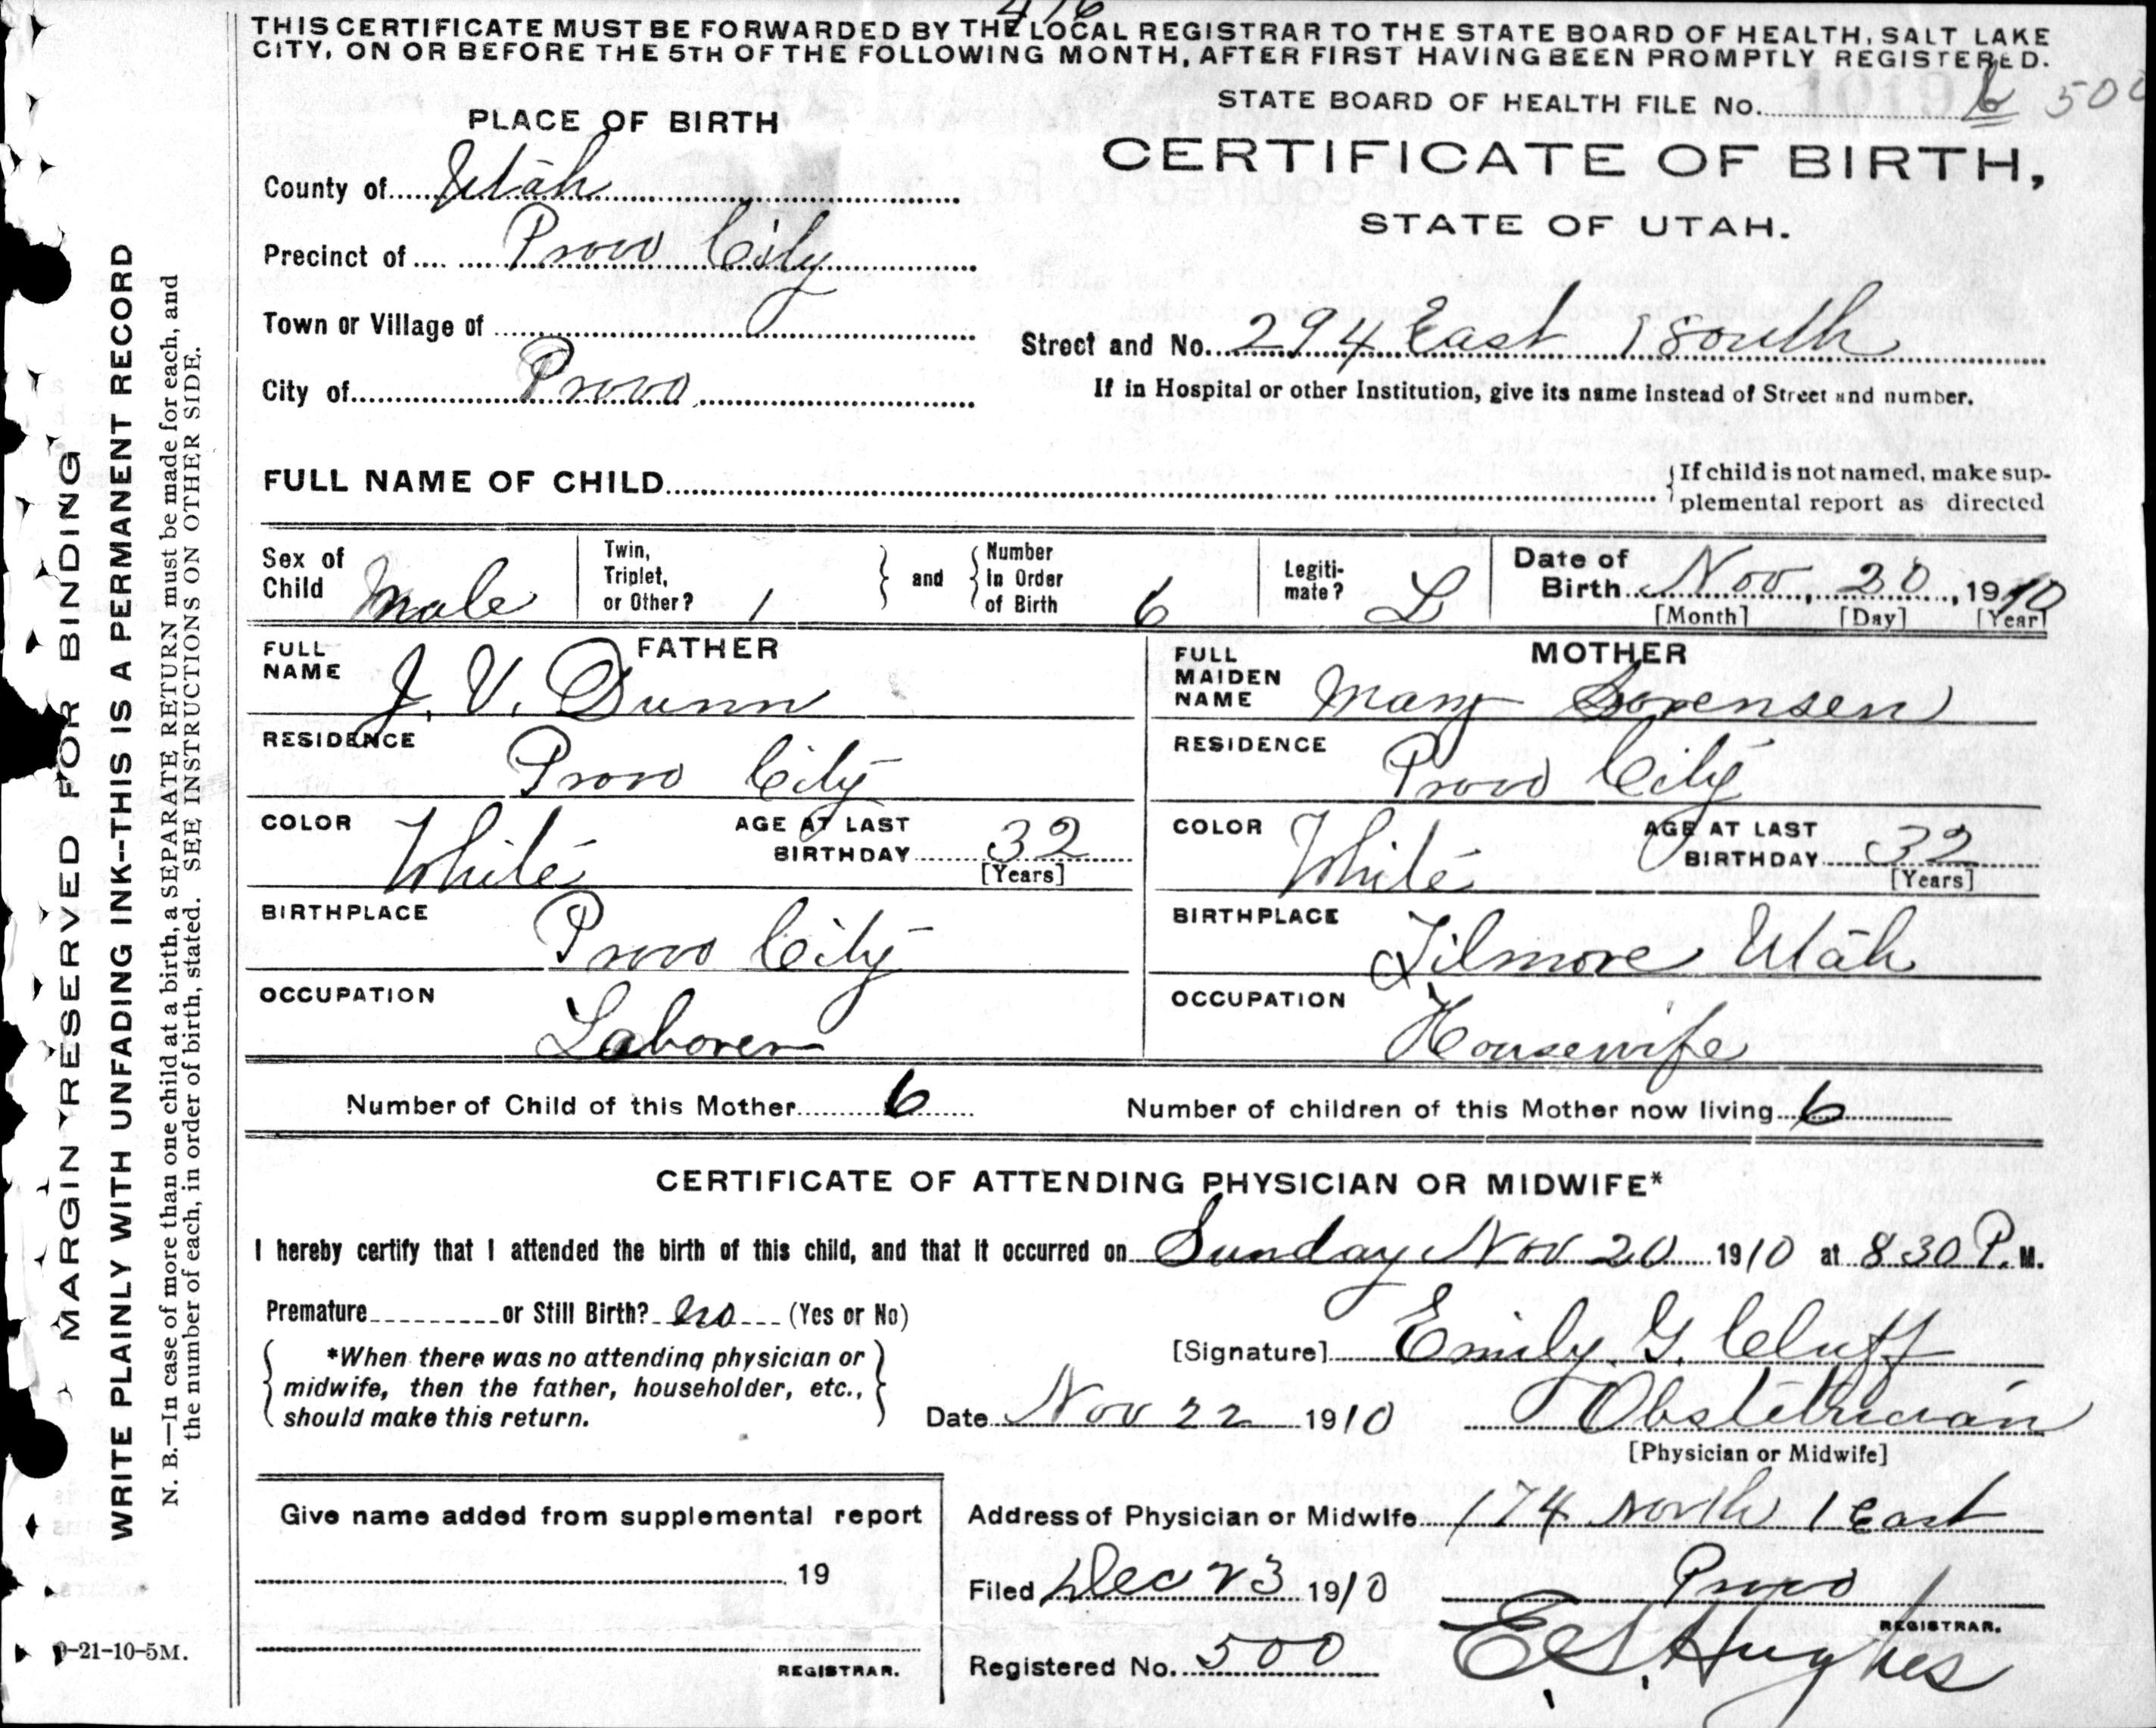 476
THIS CERTIFICATE MUST BE FORWARDED BY THE LOCAL REGISTRAR TO THE STATE BOARD OF HEALTH, SALT LAKE
CITY, ON OR BEFORE THE 5TH OF THE FOLLOWING MONTH, AFTER FIRST HAVING BEEN PROMPTLY REGISTERED.
STATE BOARD OF HEALTH FILE No. 1019 6 500
PLACE OF BIRTH
CERTIFICATE OF BIRTH,
STATE OF UTAH.
County of Utah
Precinct of Provo City
Town or Village of
Street and No. 294 East 1 South
City of Provo
If in Hospital or other Institution, give its name instead of Street and number.
FULL NAME OF CHILD
If child is not named, make sup-
plemental report as directed
Sex of Child Male
Twin, Triplet, or Other? 1
and
Number in Order of Birth 6
Legiti-mate? L
Date of Birth Nov, 20, 1910
[Month] [Day] [Year]
FATHER
FULL NAME J. V. Dunn
RESIDENCE Provo City
COLOR White AGE AT LAST BIRTHDAY 32 [Years]
BIRTHPLACE Provo City
OCCUPATION Laborer
MOTHER
FULL MAIDEN NAME Mary Sorensen
RESIDENCE Provo City
COLOR White AGE AT LAST BIRTHDAY 32 [Years]
BIRTHPLACE Filmore Utah
OCCUPATION Housewife
Number of Child of this Mother 6 Number of children of this Mother now living 6
CERTIFICATE OF ATTENDING PHYSICIAN OR MIDWIFE*
I hereby certify that I attended the birth of this child, and that it occurred on Sunday Nov 20 1910 at 8 30 P. M.
Premature or Still Birth? no (Yes or No)
*When there was no attending physician or
midwife, then the father, householder, etc.,
should make this return.
[Signature] Emily. G. Cluff
Date Nov 22 1910 Obstetrician
[Physician or Midwife]
Give name added from supplemental report
19
REGISTRAR.
Address of Physician or Midwife 174 North 1 East
Provo
Filed Dec 23 1910
REGISTRAR.
Registered No. 500 E. S. Hughes
MARGIN RESERVED FOR BINDING
WRITE PLAINLY WITH UNFADING INK--THIS IS A PERMANENT RECORD
N. B.—In case of more than one child at a birth, a SEPARATE RETURN must be made for each, and
the number of each, in order of birth, stated. SEE INSTRUCTIONS ON OTHER SIDE.
9-21-10-5M.